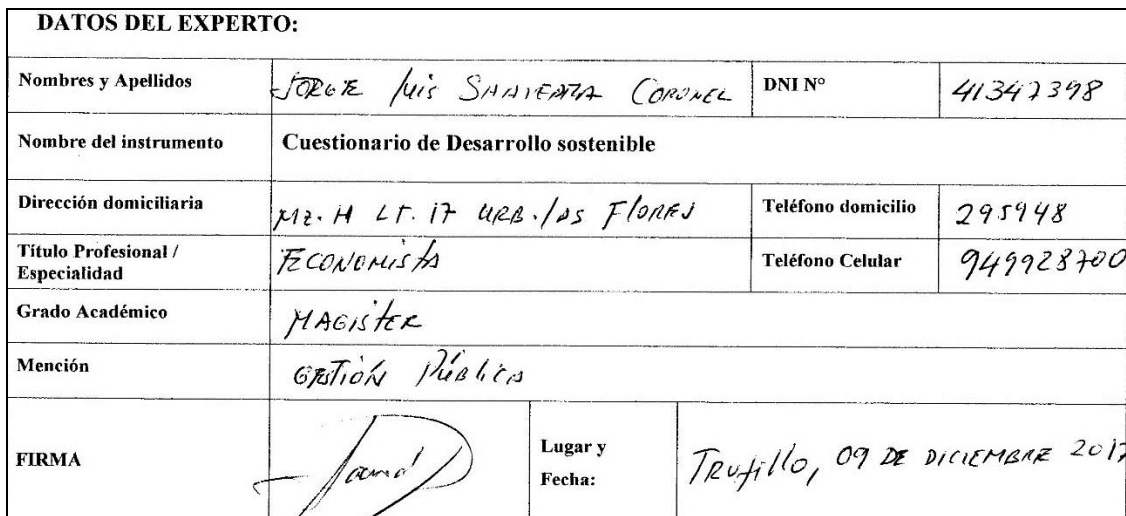 DATOS DEL EXPERTO:
Nombres y Apellidos JORGE Luis CORONEL DNI N° 41347398
Nombre del instrumento Cuestionario de Desarrollo sostenible
Dirección domiciliaria MZ. H LT. 17 URB. las FLORES Teléfono domicilio 295948
Título Profesional /
Especialidad ECONOMISTA Teléfono Celular 949928700
Grado Académico MAGISTER
Mención GESTIÓN Pública
FIRMA Lugar y
Fecha: TRUJILLO, 09 DE DICIEMBRE 2017